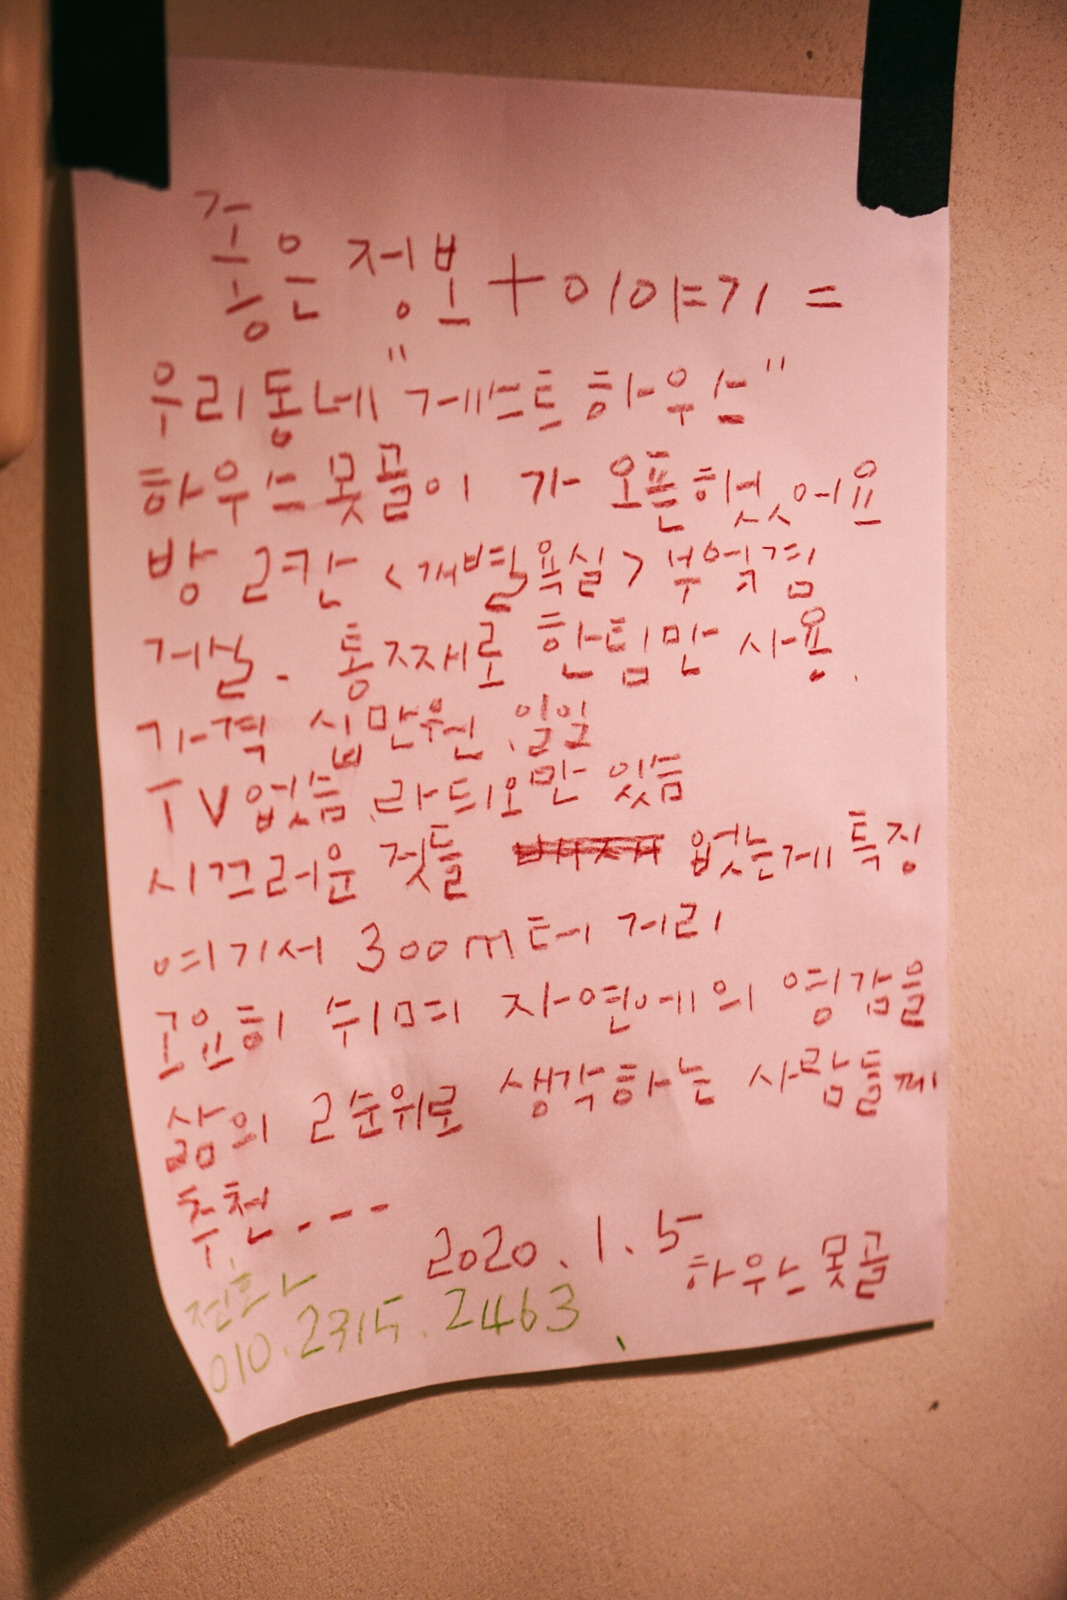 좋은 정보 + 이야기 =
우리동네 "게스트 하우스"
하우스 못골이 가 오픈했어요
방 2칸 <개별욕실> 부엌겸
거실. 통째로 한팀만 사용.
가격 십만원. 일일
TV없음. 라디오만 있음
시끄러운 것들 없는게 특징
여기서 300m터 거리
고요히 쉬며 자연에의 영감을
삶의 2순위로 생각하는 사람들께
추천. - - -
2020. 1. 5
하우스 못골
전화
010. 2315. 2463